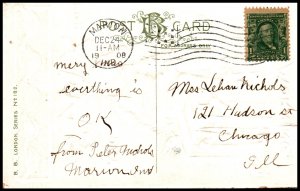 POST CARD
MARION
DEC 24
11-AM
1908
IND.
FOR ADDRESS ONLY
mery Xmas
everthing is
OK
from Peter Nichols
Marion Ind
Mrs Lelian Nichols
121 Hudson st
Chicago
Ill
B. B. LONDON. SERIES No.